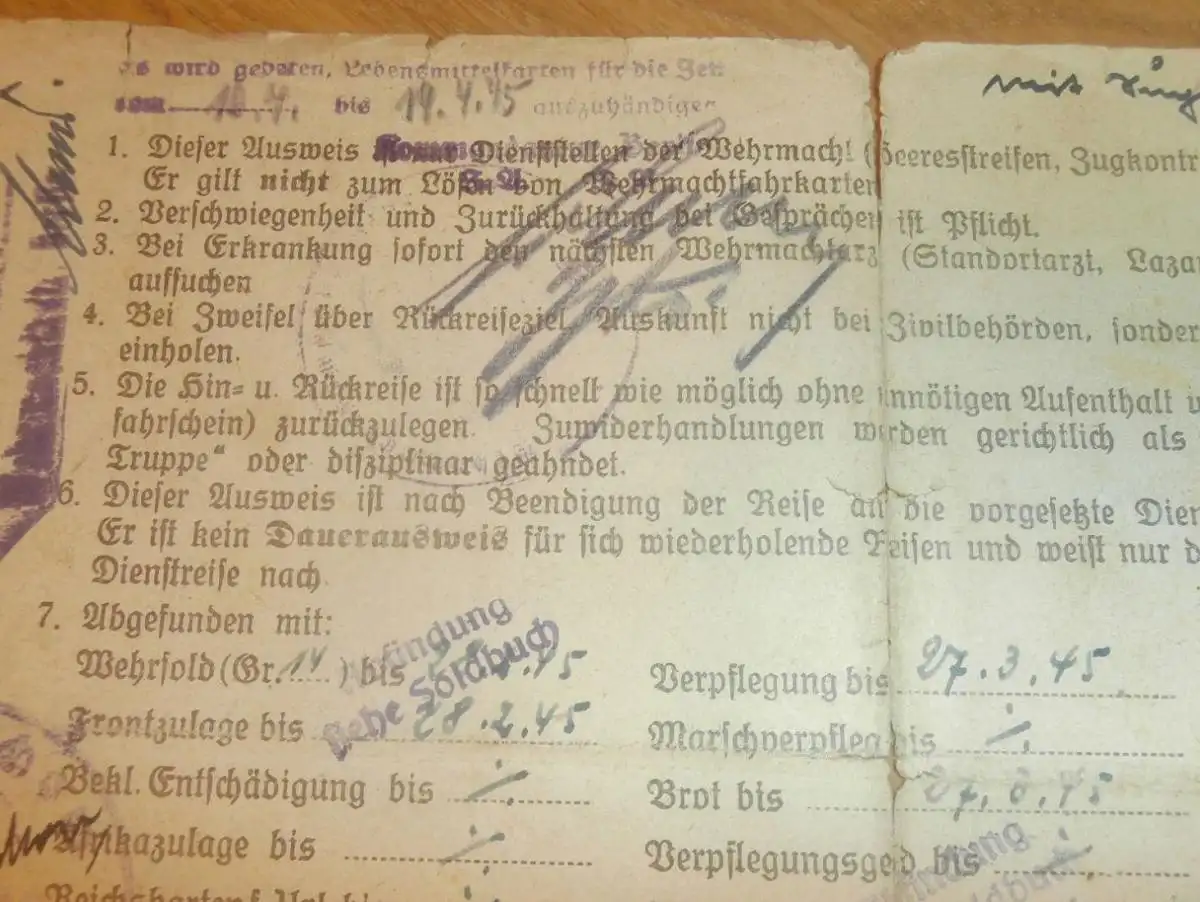 es wird gebeten, Lebensmittelkarten für die Zeit
vom 10.4. bis 14.4.45 auszuhändigen
mit
1. Dieser Ausweis Dienststellen der Wehrmacht (Heeresstreifen, Zugkontr
Er gilt nicht zum Lösen von Wehrmachtfahrkarten
2. Verschwiegenheit und Zurückhaltung bei Gesprächen ist Pflicht.
3. Bei Erkrankung sofort den nächsten Wehrmachtarzt (Standortarzt, Laza
aufsuchen
4. Bei Zweifel über Rückreiseziel, Auskunft nicht bei Zivilbehörden, sonder
einholen.
5. Die Hin- u. Rückreise ist so schnell wie möglich ohne unnötigen Aufenthalt u
fahrschein) zurückzulegen. Zuwiderhandlungen werden gerichtlich als
Truppe" oder disziplinar geahndet.
6. Dieser Ausweis ist nach Beendigung der Reise an die vorgesetzte Dien
Er ist kein Dauerausweis für sich wiederholende Reisen und weist nur d
Dienstreise nach
7. Abgefunden mit:
Wehrsold (Gr. 14 ) bis 45
Verpflegung bis 27.3.45
siehe Soldbuch
Frontzulage bis 28.2.45
Marschverpfleg bis ·/.
Bekl. Entschädigung bis ·/.
Brot bis 27.3.45
Afrikazulage bis ·/.
Verpflegungsgeld bis ·/.